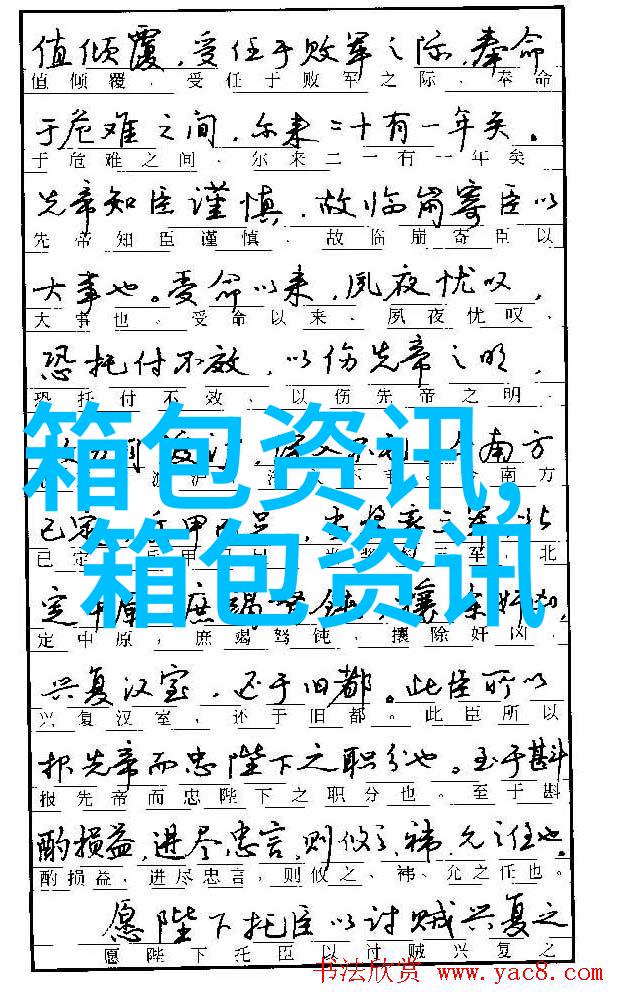 值倾覆，受任于败军之际，奉命
值倾覆，受任于败军之际，奉命
于危难之间，尔来二十有一年矣。
于危难之间，尔来二一有一年矣
先帝知臣谨慎，故临崩寄臣以
先帝知臣谨慎，故临崩寄臣以
大事也。受命以来，夙夜忧叹，
大事也。受命以来，夙夜忧叹，
恐托付不效，以伤先帝之明，
恐托付不效，以伤先帝之明，
箱包资讯,
南方
南方
已定，甲已足，三军，北
已定，三军，北
箱包资讯
定中原，庶竭驽钝，攘除奸凶，
定中原，庶竭驽钝，攘除奸凶，
兴复汉室，还于旧都。此臣所以
兴复汉室，还于旧都。此臣所以
报先帝而忠陛下之职分也。至于斟
报先帝而忠陛下之职分也。至于斟
酌损益，进尽忠言，则攸之、袆、允之任也。
酌损益，进尽忠言，则攸之、袆、允之任也。
愿陛下托臣以讨贼兴复之
愿陛下托臣以讨贼兴复之
书法欣赏 www.yac8.com